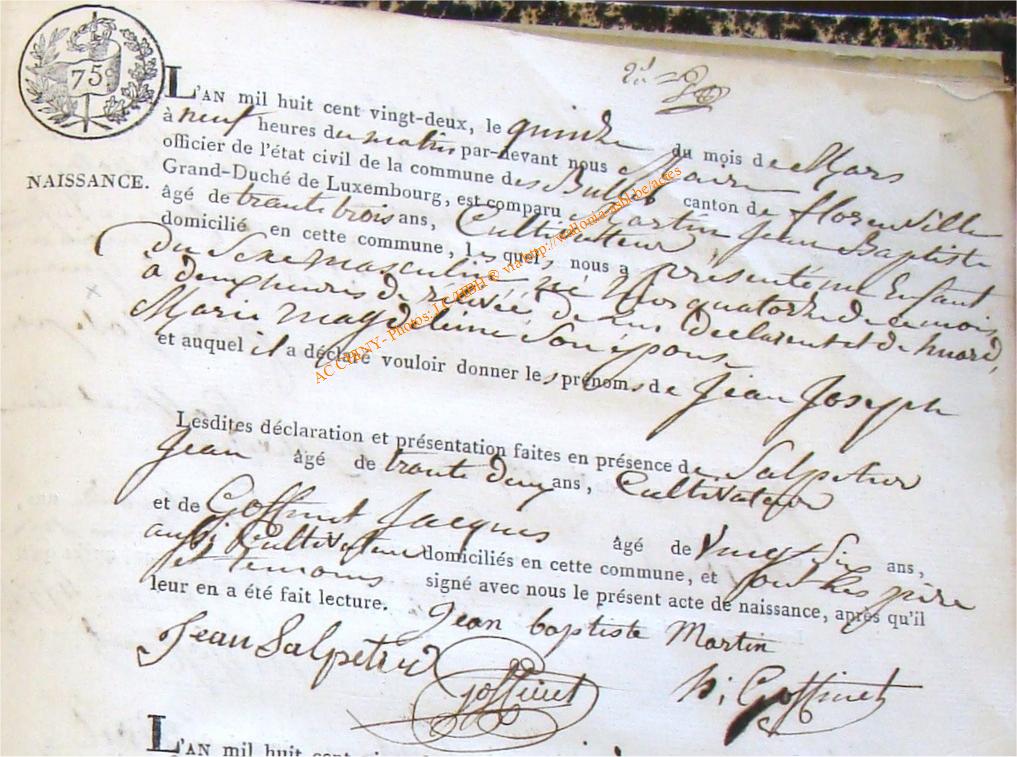 75
NAISSANCE.
L'AN mil huit cent vingt-deux, le quinze du mois de Mars
à neuf heures du matin par-devant nous Maire
officier de l'état civil de la commune des Bulles canton de florenville
Grand-Duché de Luxembourg, est comparu Martin Jean Baptiste
âgé de trante trois ans, Cultivateur
domicilié en cette commune, lesquels nous a présenté un Enfant
du Sexe masculin né le quatorze de ce mois
à deux heures de de lui declarent et de huard
Marie Magdeleine Son épouse
et auquel il a déclaré vouloir donner les prénoms de Jean Joseph
Lesdites déclaration et présentation faites en présence de Salpeteur
Jean âgé de trante deux ans, Cultivateur
et de Goffinet Jacques âgé de Vingt Six ans,
aussi Cultivateur domiciliés en cette commune, et sont les père
et temoins signé avec nous le présent acte de naissance, après qu'il
leur en a été fait lecture. Jean baptiste Martin
Jean Salpeteur Goffinet Goffinet
L'AN mil huit cent
ACCIBNY - Photos: LC/HBH ® via http://wallonia-asbl.be/actes